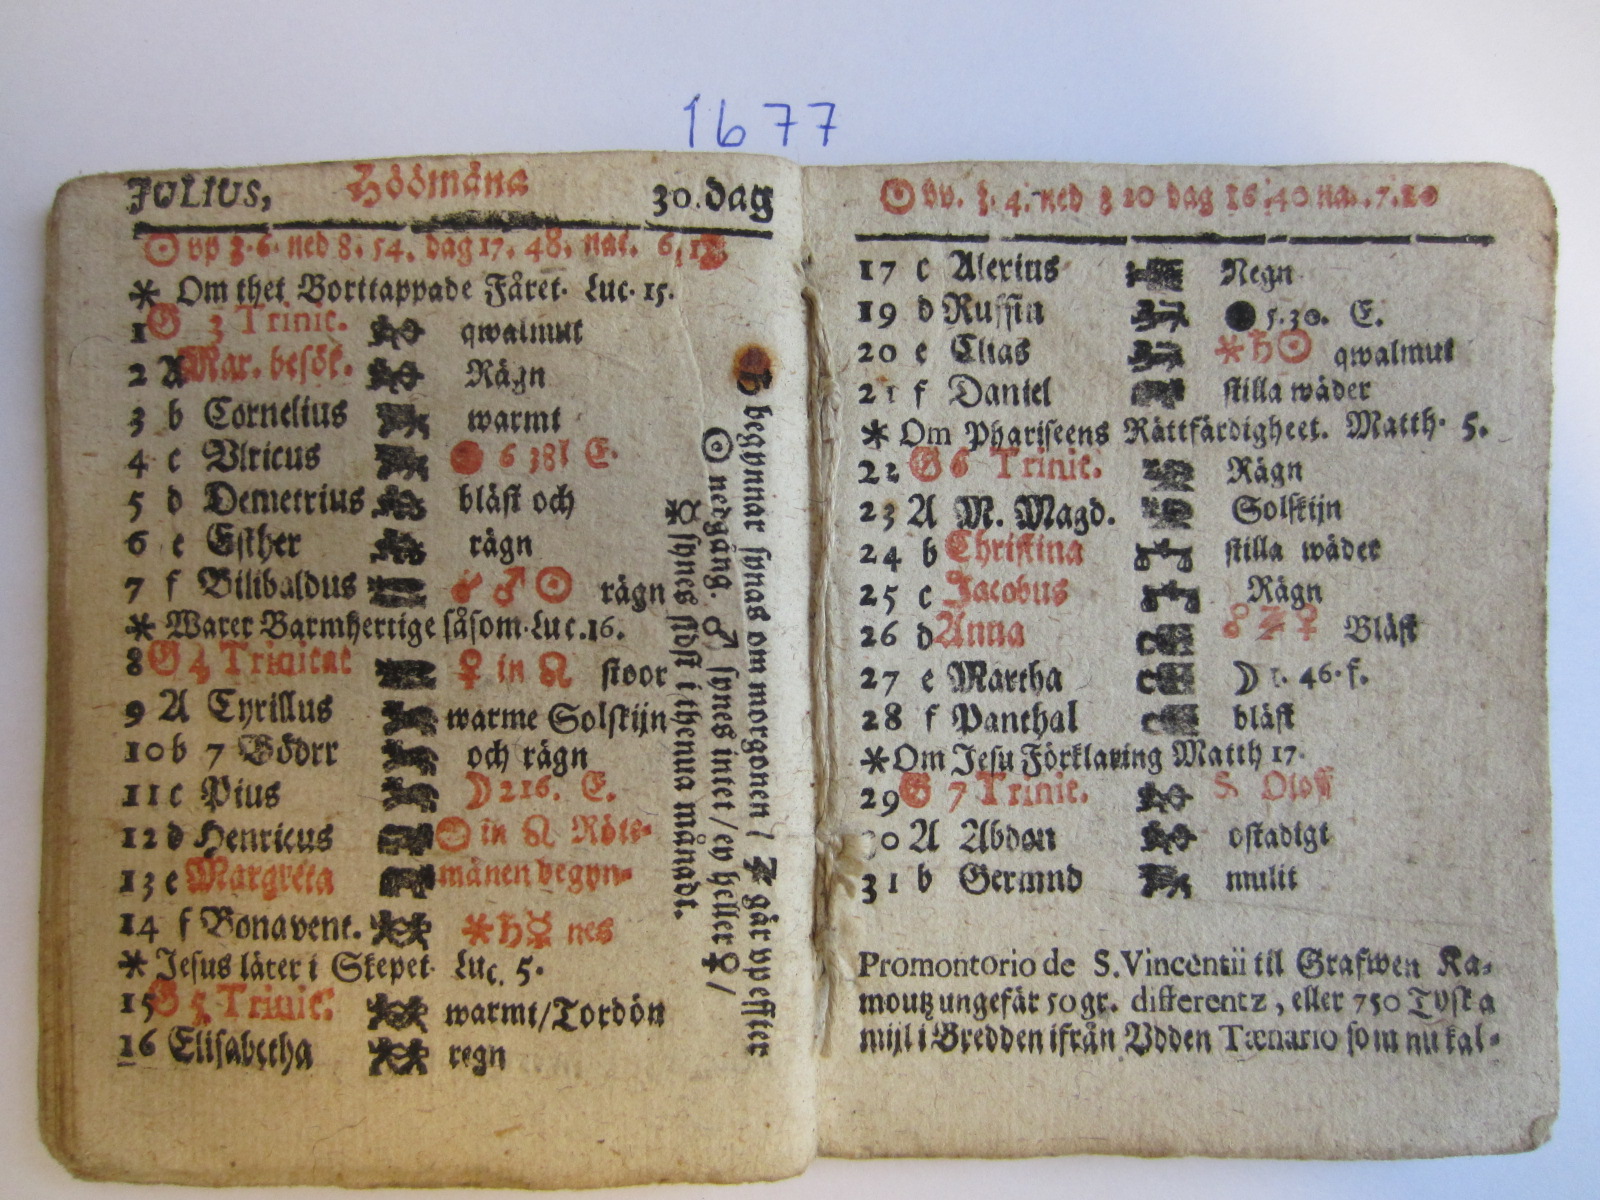 1677
JULIUS, Höömåna 30. dag
☉ vp 3. 6. ned 8. 54. dag 17. 48. nat. 6, 12
* Om thet Borttappade Fåret. Luc. 15.
1 G 3 Trinit. qwalmut
2 A Mar. besök. Rägn
3 b Cornelius warmt
4 c Vlricus ● 6 38 E.
5 d Demetrius bläst och
6 e Esther rägn
7 f Bilibaldus ☌ ♂ ☉ rägn
* Warer Barmhertige såsom. Luc. 16.
8 G 4 Trinitat ♀ in ♌ stoor
9 A Cyrillus warme Solskijn
10 b 7 Bödrr och rägn
11 c Pius ☽ 2 16. E.
12 d Henricus ☉ in ♌ Röts-
13 e Margreta månen begyn-
14 f Bonavent. * ♄ ☿ nes
* Jesus läter i Skepet. Luc. 5.
15 G 5 Trinit. warmt/Tordön
16 Elisabetha regn
♄ begynnar synas om morgonen / ♃ går vp effter
☉ nedgång. ♂ synes intet / ey heller ♀ /
☿ synes sidst i thenna månadt.
☉ vp. 3. 4. ned 8 20 dag 16 40 na. 7. 20
17 c Alexius Regn
19 d Ruffin ● 5. 30. E.
20 e Elias * ♄ ☉ qwalmut
21 f Daniel stilla wäder
* Om Phariseens Rättfärdigheet. Matth. 5.
22 G 6 Trinit. Rägn
23 A M. Magd. Solskijn
24 b Christina stilla wäder
25 c Jacobus Rägn
26 d Anna ☍ ♃ ♀ Bläst
27 e Martha ☽ 1. 46. f.
28 f Panthal bläst
* Om Jesu Förklaring Matth 17.
29 G 7 Trinit. S. Oloff
30 A Abdon ostadigt
31 b Germnd mulit
Promontorio de S. Vincentii til Grafwen Ka-
moutz ungefär 50 gr. differentz, eller 750 Tyska
mijl i Bredden ifrån Vdden Tænario som nu kal-